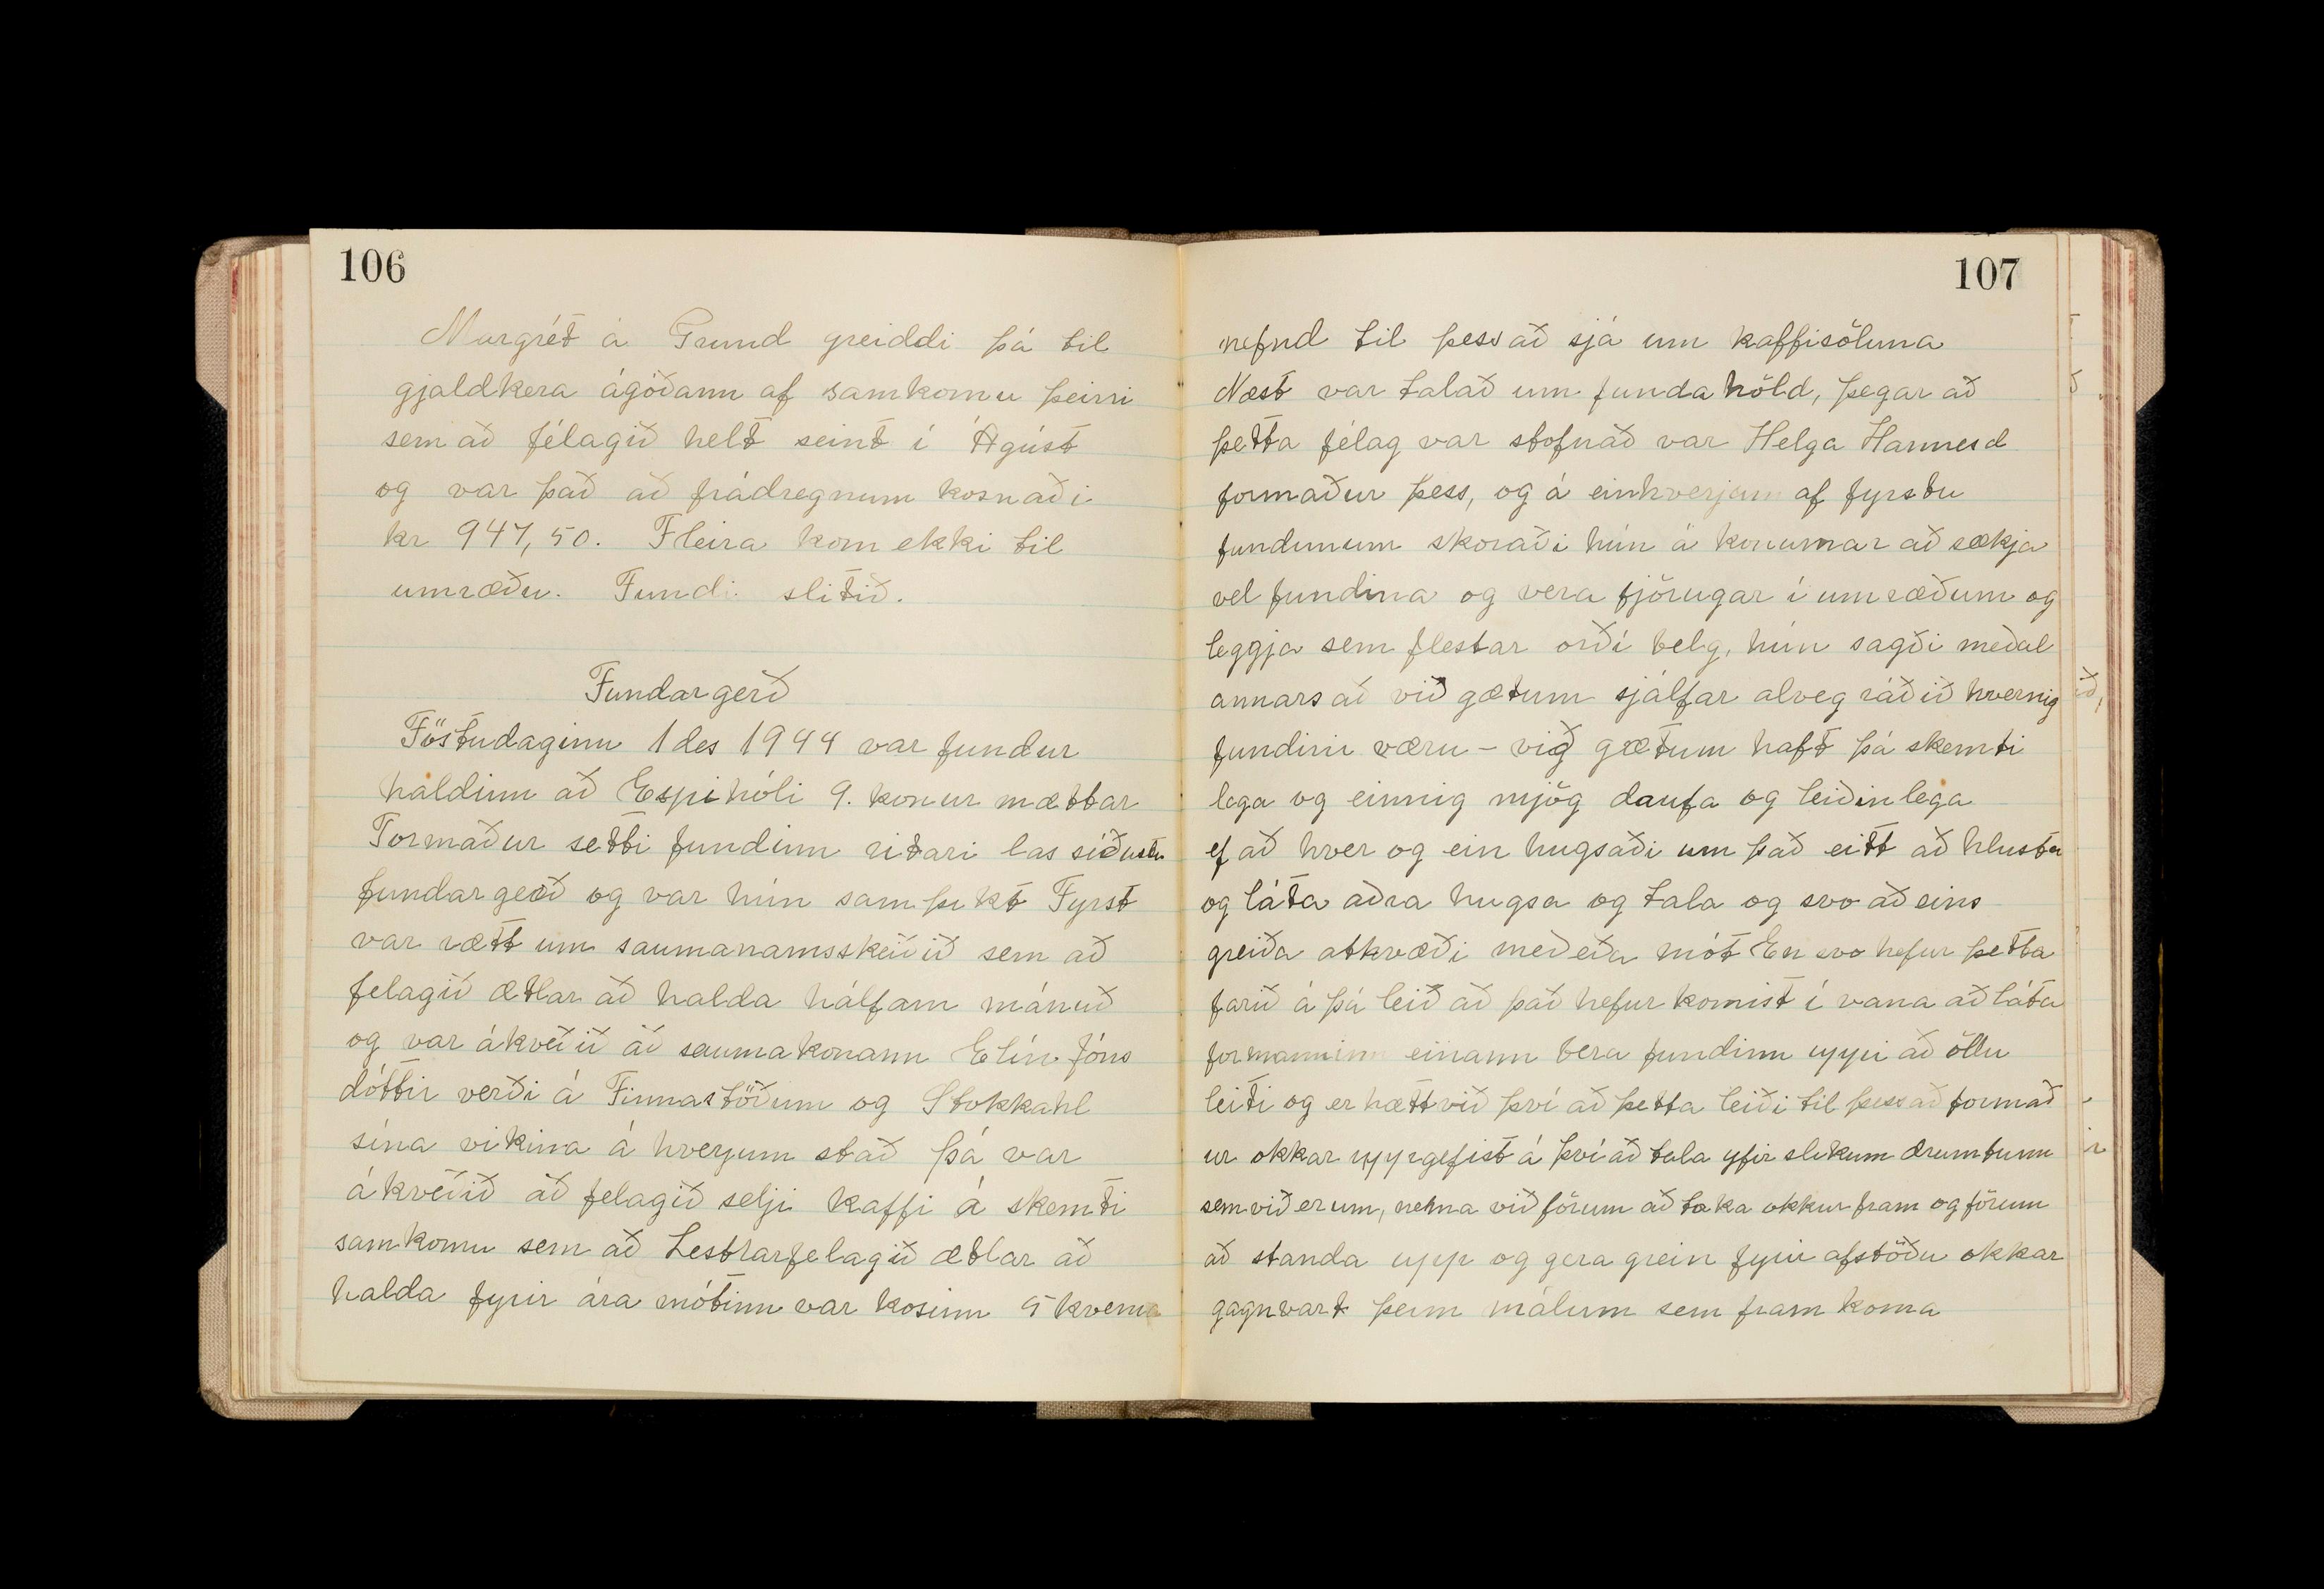 106
Margrét á Grund greiddi þá til
gjaldkera ágóðann af samkomu þeirri
sem að félagið helt seint í Ágúst
og var það að frádregnum kosnaði
kr 947,50. Fleira kom ekki til
umræðu. Fundi slitið.
Fundargerð
Föstudaginn 1 des 1944 var fundur
haldinn að Espihóli 9. konur mættar
Formaður setti fundinn ritari las síðustu
fundargerð og var hún samþikt Fyrst
var rætt um saumanamsskeiðið sem að
felagið ætlar að halda hálfam mánuð
og var ákveðið að saumakonann Elín Jóns
dóttir verði á Finnastöðum og Stokkahl
sína vikina á hverjum stað Þá var
ákveðið að felagið selji kaffi á skemti
samkomu sem að Lestrarfelagið ætlar að
halda fyrir ára mótinn var kosinn 5 kvenna
107
nefnd til þess að sjá um kaffisöluna
Næst var talað um funda höld, þegar að
þetta félag var stofnað var Helga Hannesd
formaður þess, og á einhverjum af fyrstu
fundunum skoraði hún á konurnar að sækja
vel fundina og vera fjörugar í umræðum og
leggja sem flestar orð í belg, hún sagði meðal
annars að við gætum sjálfar alveg ráðið hvernig
fundirnir væru - við gætum haft þá skemti
lega og einnig mjög daufa og leiðinlega
ef að hver og ein hugsaði um það eitt að hlusta
og láta aðra hugsa og tala og svo aðeins
greiða atkvæði með eða mót En svo hefur þetta
farið á þá leið að það hefur komist í vana að láta
formanninn einann bera fundinn uppi að öllu
leiti og er hætt við því að þetta leiði til þess að formað
ur okkar uppgefist á því að tala yfir slikum drumbum
sem við erum, nema við förum að taka okkur fram og förum
að standa upp og gera grein fyrir afstöðu okkar
gagnvart þeim málum sem fram koma